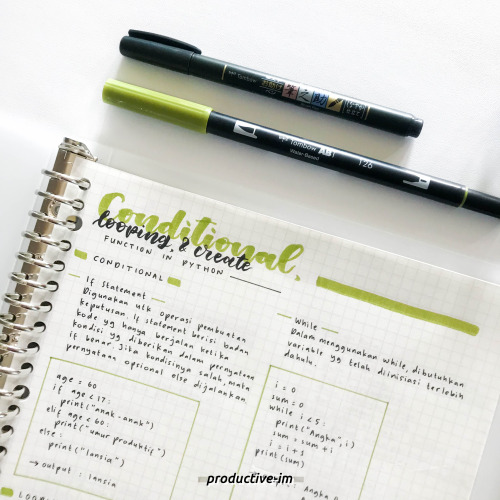 Tombow
筆之助
Tombow ABT
Water Based
126
Conditional,
looping, & create
FUNCTION IN PYTHON
CONDITIONAL
If Statement
Digunakan utk operasi pembuatan
keputusan. If statement berisi badan
kode yg hanya berjalan ketika
kondisi yg diberikan dalam pernyataan
if benar. Jika kondisinya salah, maka
pernyataan opsional else dijalankan
age = 60
if age < 17:
print("anak-anak")
elif age < 60:
print("umur produktif")
else:
print("lansia")
→ output : lansia
While
Dalam menggunakan while, dibutuhkan
variable yg telah diinisiasi terlebih
dahulu.
i = 0
sum = 0
while i < 5:
print("Angka", i)
sum = sum + i
i = i + 1
print(sum)
Angka 0
productive-im